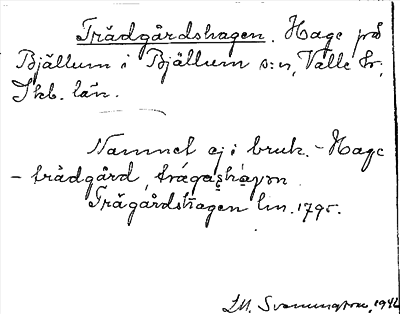 Trädgårdshagen. Hage på
Bjällum i Bjällum s:n, Valle hr,
Skb. län.
Namnet ej i bruk. - Hage
- trädgård, trǟgashāgən
Trägårdshagen lm. 1795.
1942